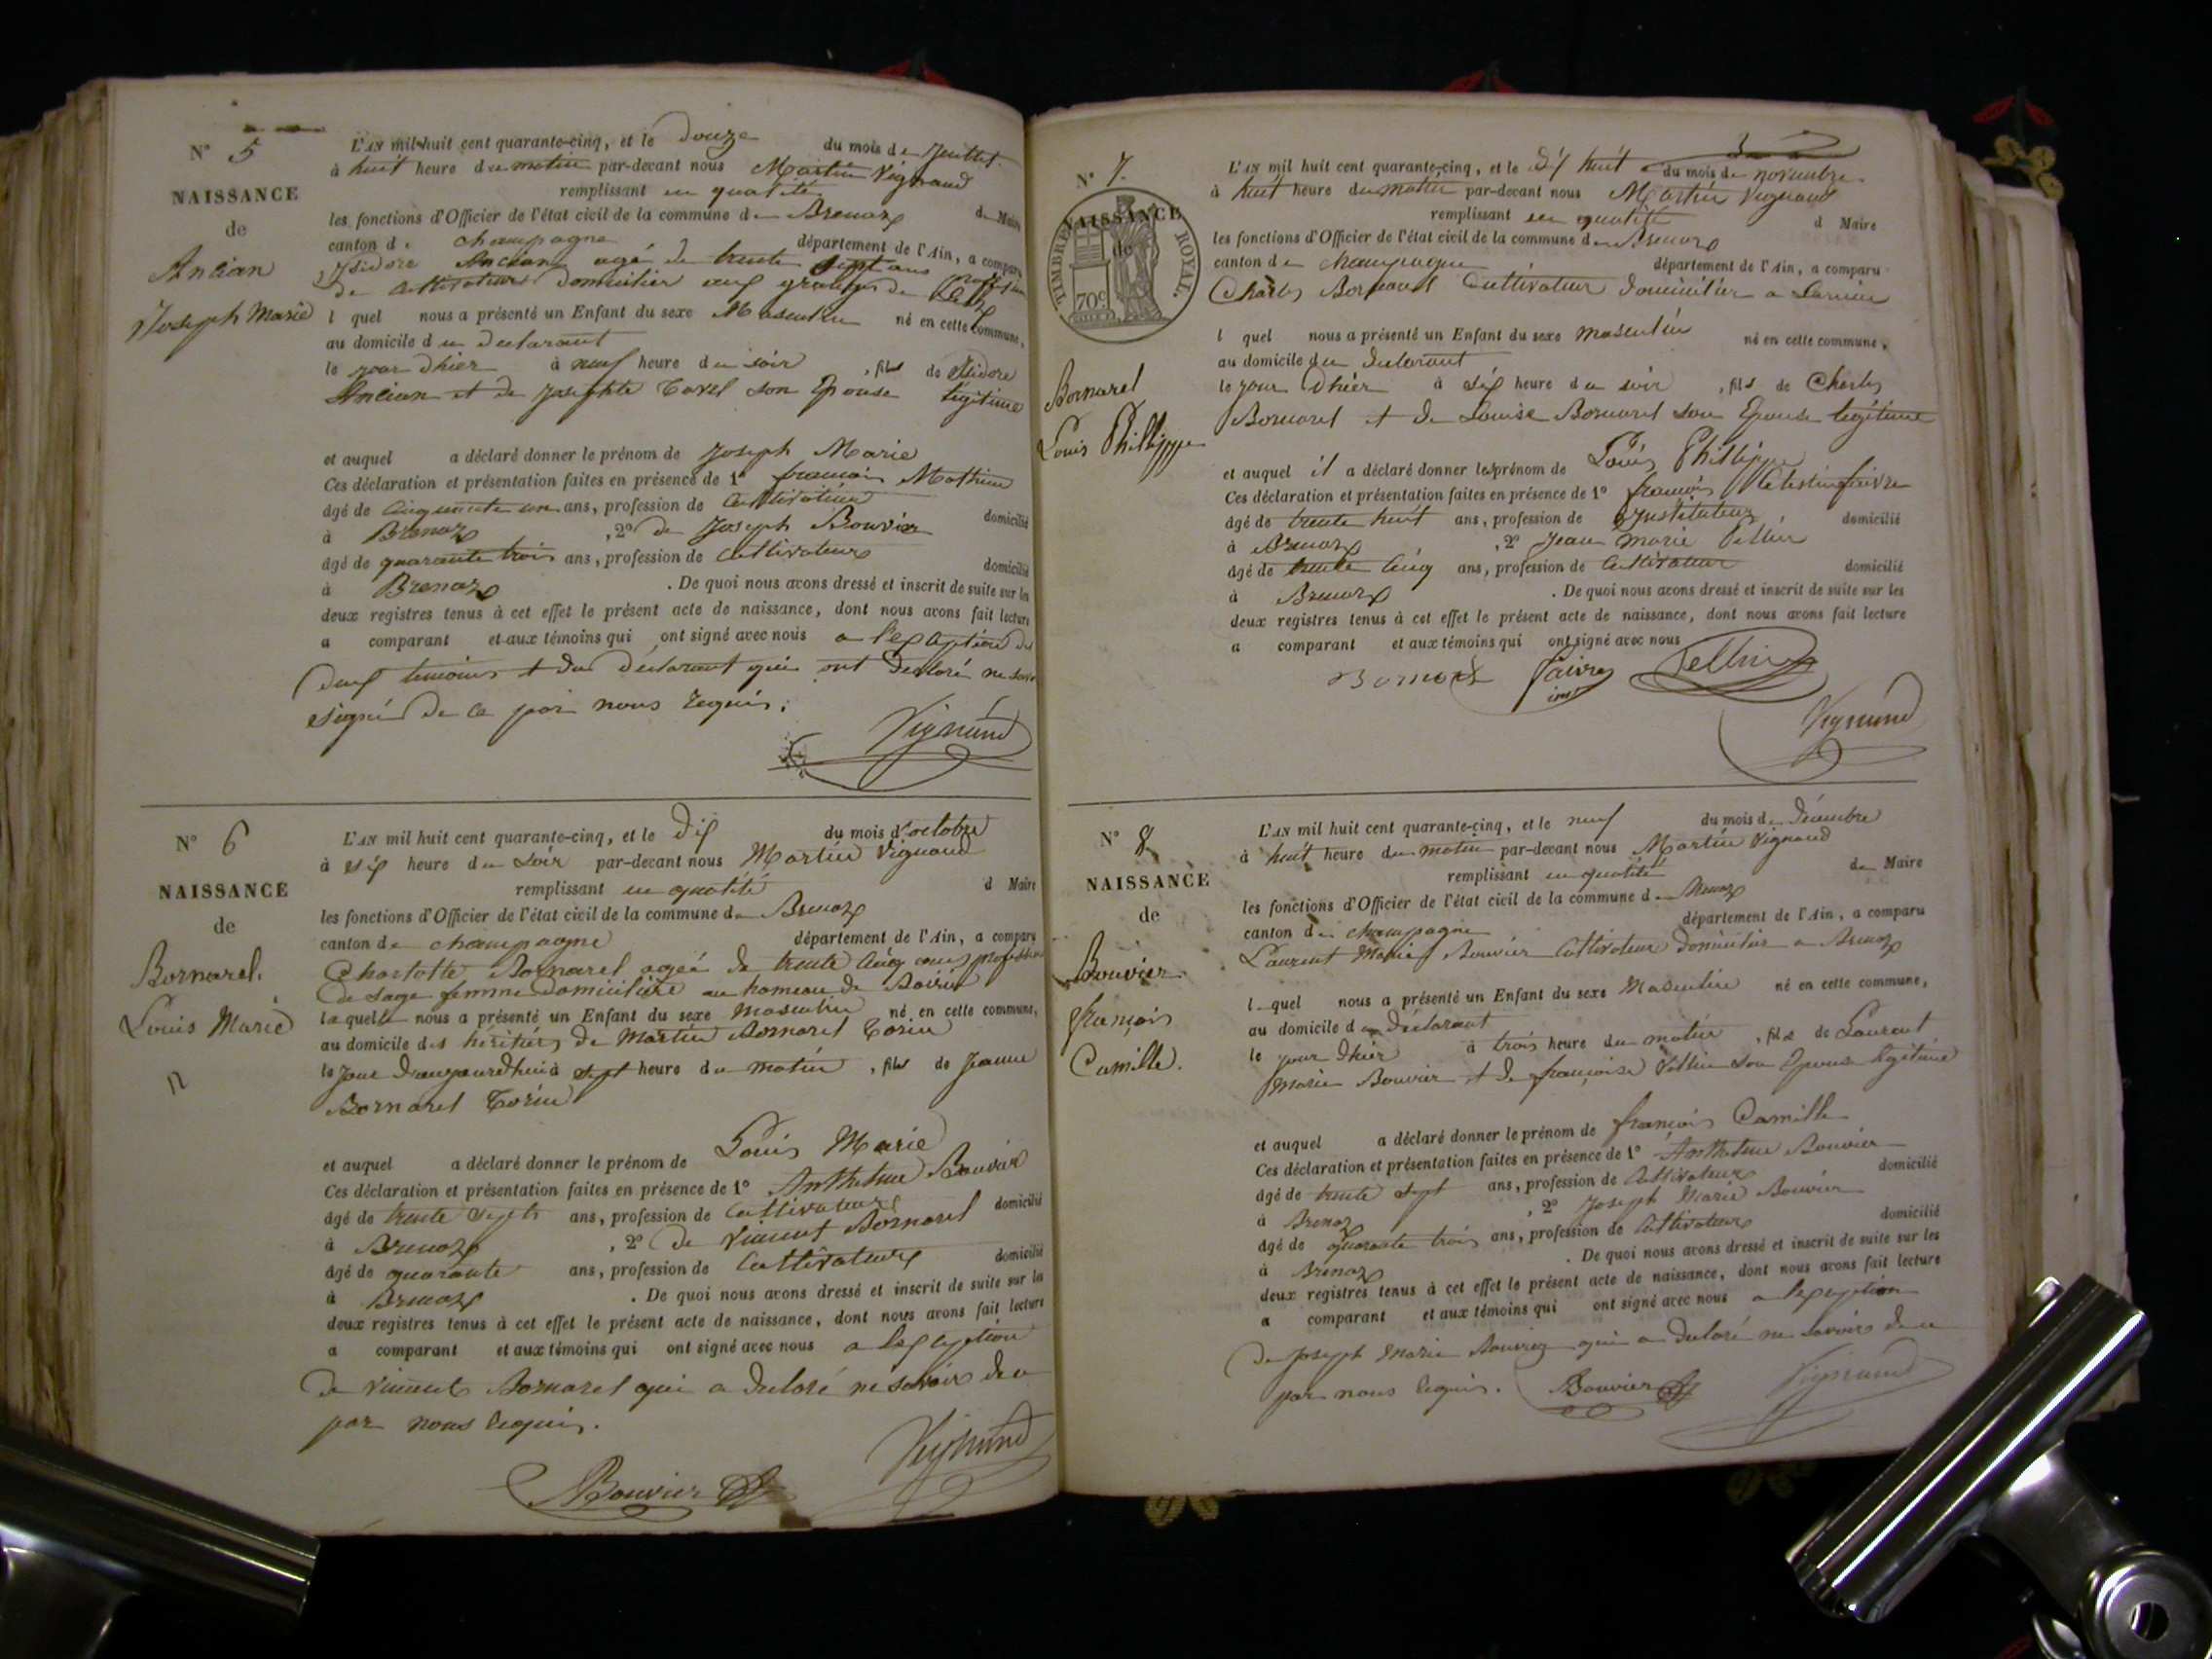 N° 5
NAISSANCE
de
Ancian
Joseph Marie
L'AN mil huit cent quarante-cinq, et le douze du mois de Juillet
à huit heure du matin par-devant nous Martin Vignaud
remplissant en qualité de Maire
les fonctions d'Officier de l'état civil de la commune de Brenaz
canton de champagne département de l'Ain, a comparu
Isidore Ancian agé de trente sept ans profession
de cultivateur domicilier aux granges de
l quel nous a présenté un Enfant du sexe Masculin né en cette commune,
au domicile du declarant
le jour dhier à neuf heure du soir , fils de Isidore
Ancian et de Josephte Tavel son Epouse légitime
et auquel a déclaré donner le prénom de Joseph Marie
Ces déclaration et présentation faites en présence de 1° francois Mathieu
âgé de cinquante un ans, profession de cultivateur domicilié
à Brenaz , 2° de Joseph Bouvier
âgé de quarante trois ans, profession de cultivateur domicilié
à Brenaz . De quoi nous avons dressé et inscrit de suite sur les
deux registres tenus à cet effet le présent acte de naissance, dont nous avons fait lecture
a comparant et aux témoins qui ont signé avec nous a l'exception des
deux temoins et du déclarant qui ont déclaré ne savoir
signé de ce par nous requis.
Vignaud
N° 6
NAISSANCE
de
Bornarel.
Louis Marie
L'AN mil huit cent quarante-cinq, et le dix du mois d'octobre
à six heure du soir par-devant nous Martin Vignaud
remplissant en qualité d Maire
les fonctions d'Officier de l'état civil de la commune de Brenaz
canton de champagne département de l'Ain, a comparu
Charlotte Bornarel ageé de trente cinq ans profession
de sage femme domiciliére au hameau de
laquelle nous a présenté un Enfant du sexe masculin né en cette commune,
au domicile des héritiers de Martin Bornarel Torin
le jour d'aujourdhui à sept heure du matin , fils de Jeanne
Bornarel Torin
et auquel a déclaré donner le prénom de Louis Marie
Ces déclaration et présentation faites en présence de 1° Anthelme Bouvier
âgé de trente sept ans, profession de cultivateur domicilié
à Brenaz , 2° de Vincent Bornarel
âgé de quarante ans, profession de cultivateur domicilié
à Brenaz . De quoi nous avons dressé et inscrit de suite sur la
deux registres tenus à cet effet le présent acte de naissance, dont nous avons fait lecture
a comparant et aux témoins qui ont signé avec nous a lexception
de Vincent Bornarel qui a declaré ne savoir de ce
par nous requis.
Bouvier Vignaud
N° 7.
NAISSANCE
de
TIMBRE ROYAL.
70c
Bornarel
Louis Philippe
L'AN mil huit cent quarante-cinq, et le dix huit du mois de novembre
à huit heure du matin par-devant nous Martin Vignaud
remplissant en qualité d Maire
les fonctions d'Officier de l'état civil de la commune de Brenaz
canton de champagne département de l'Ain, a comparu
Charles Bornarel cultivateur domicilier a
l quel nous a présenté un Enfant du sexe masculin né en cette commune,
au domicile du declarant
le jour dhier à six heure du soir , fils de Charles
Bornarel et de Louise Bornarel son Epouse legitime
et auquel il a déclaré donner les prénom de Louis Philippe
Ces déclaration et présentation faites en présence de 1° francois Celestin faivre
âgé de trente huit ans, profession de Instituteur domicilié
à Brenaz , 2° Jean Marie Tellier
âgé de trente cinq ans, profession de cultivateur domicilié
à Brenaz . De quoi nous avons dressé et inscrit de suite sur les
deux registres tenus à cet effet le présent acte de naissance, dont nous avons fait lecture
a comparant et aux témoins qui ont signé avec nous
Faivre
Vignaud
N° 8
NAISSANCE
de
Bouvier
françois
Camille.
L'AN mil huit cent quarante-cinq, et le neuf du mois de Décembre
à huit heure du matin par-devant nous Martin Vignaud
remplissant en qualité de Maire
les fonctions d'Officier de l'état civil de la commune de Brenaz
canton de champagne département de l'Ain, a comparu
Laurent Marie Bouvier cultivateur domicilier a Brenaz
l quel nous a présenté un Enfant du sexe Masculin né en cette commune,
au domicile du déclarant
le jour dhier à trois heure du matin , fils de Laurent
Marie Bouvier et de françoise son Epouse legitime
et auquel a déclaré donner le prénom de françois Camille
Ces déclaration et présentation faites en présence de 1° Anthelme Bouvier
âgé de trente sept ans, profession de cultivateur domicilié
à Brenaz , 2° Joseph Marie Bouvier
âgé de quarante trois ans, profession de cultivateur domicilié
à Brenaz . De quoi nous avons dressé et inscrit de suite sur les
deux registres tenus à cet effet le présent acte de naissance, dont nous avons fait lecture
a comparant et aux témoins qui ont signé avec nous a lexception
de Joseph Marie Bouvier qui a declaré ne savoir de ce
par nous requis. Bouvier Vignaud